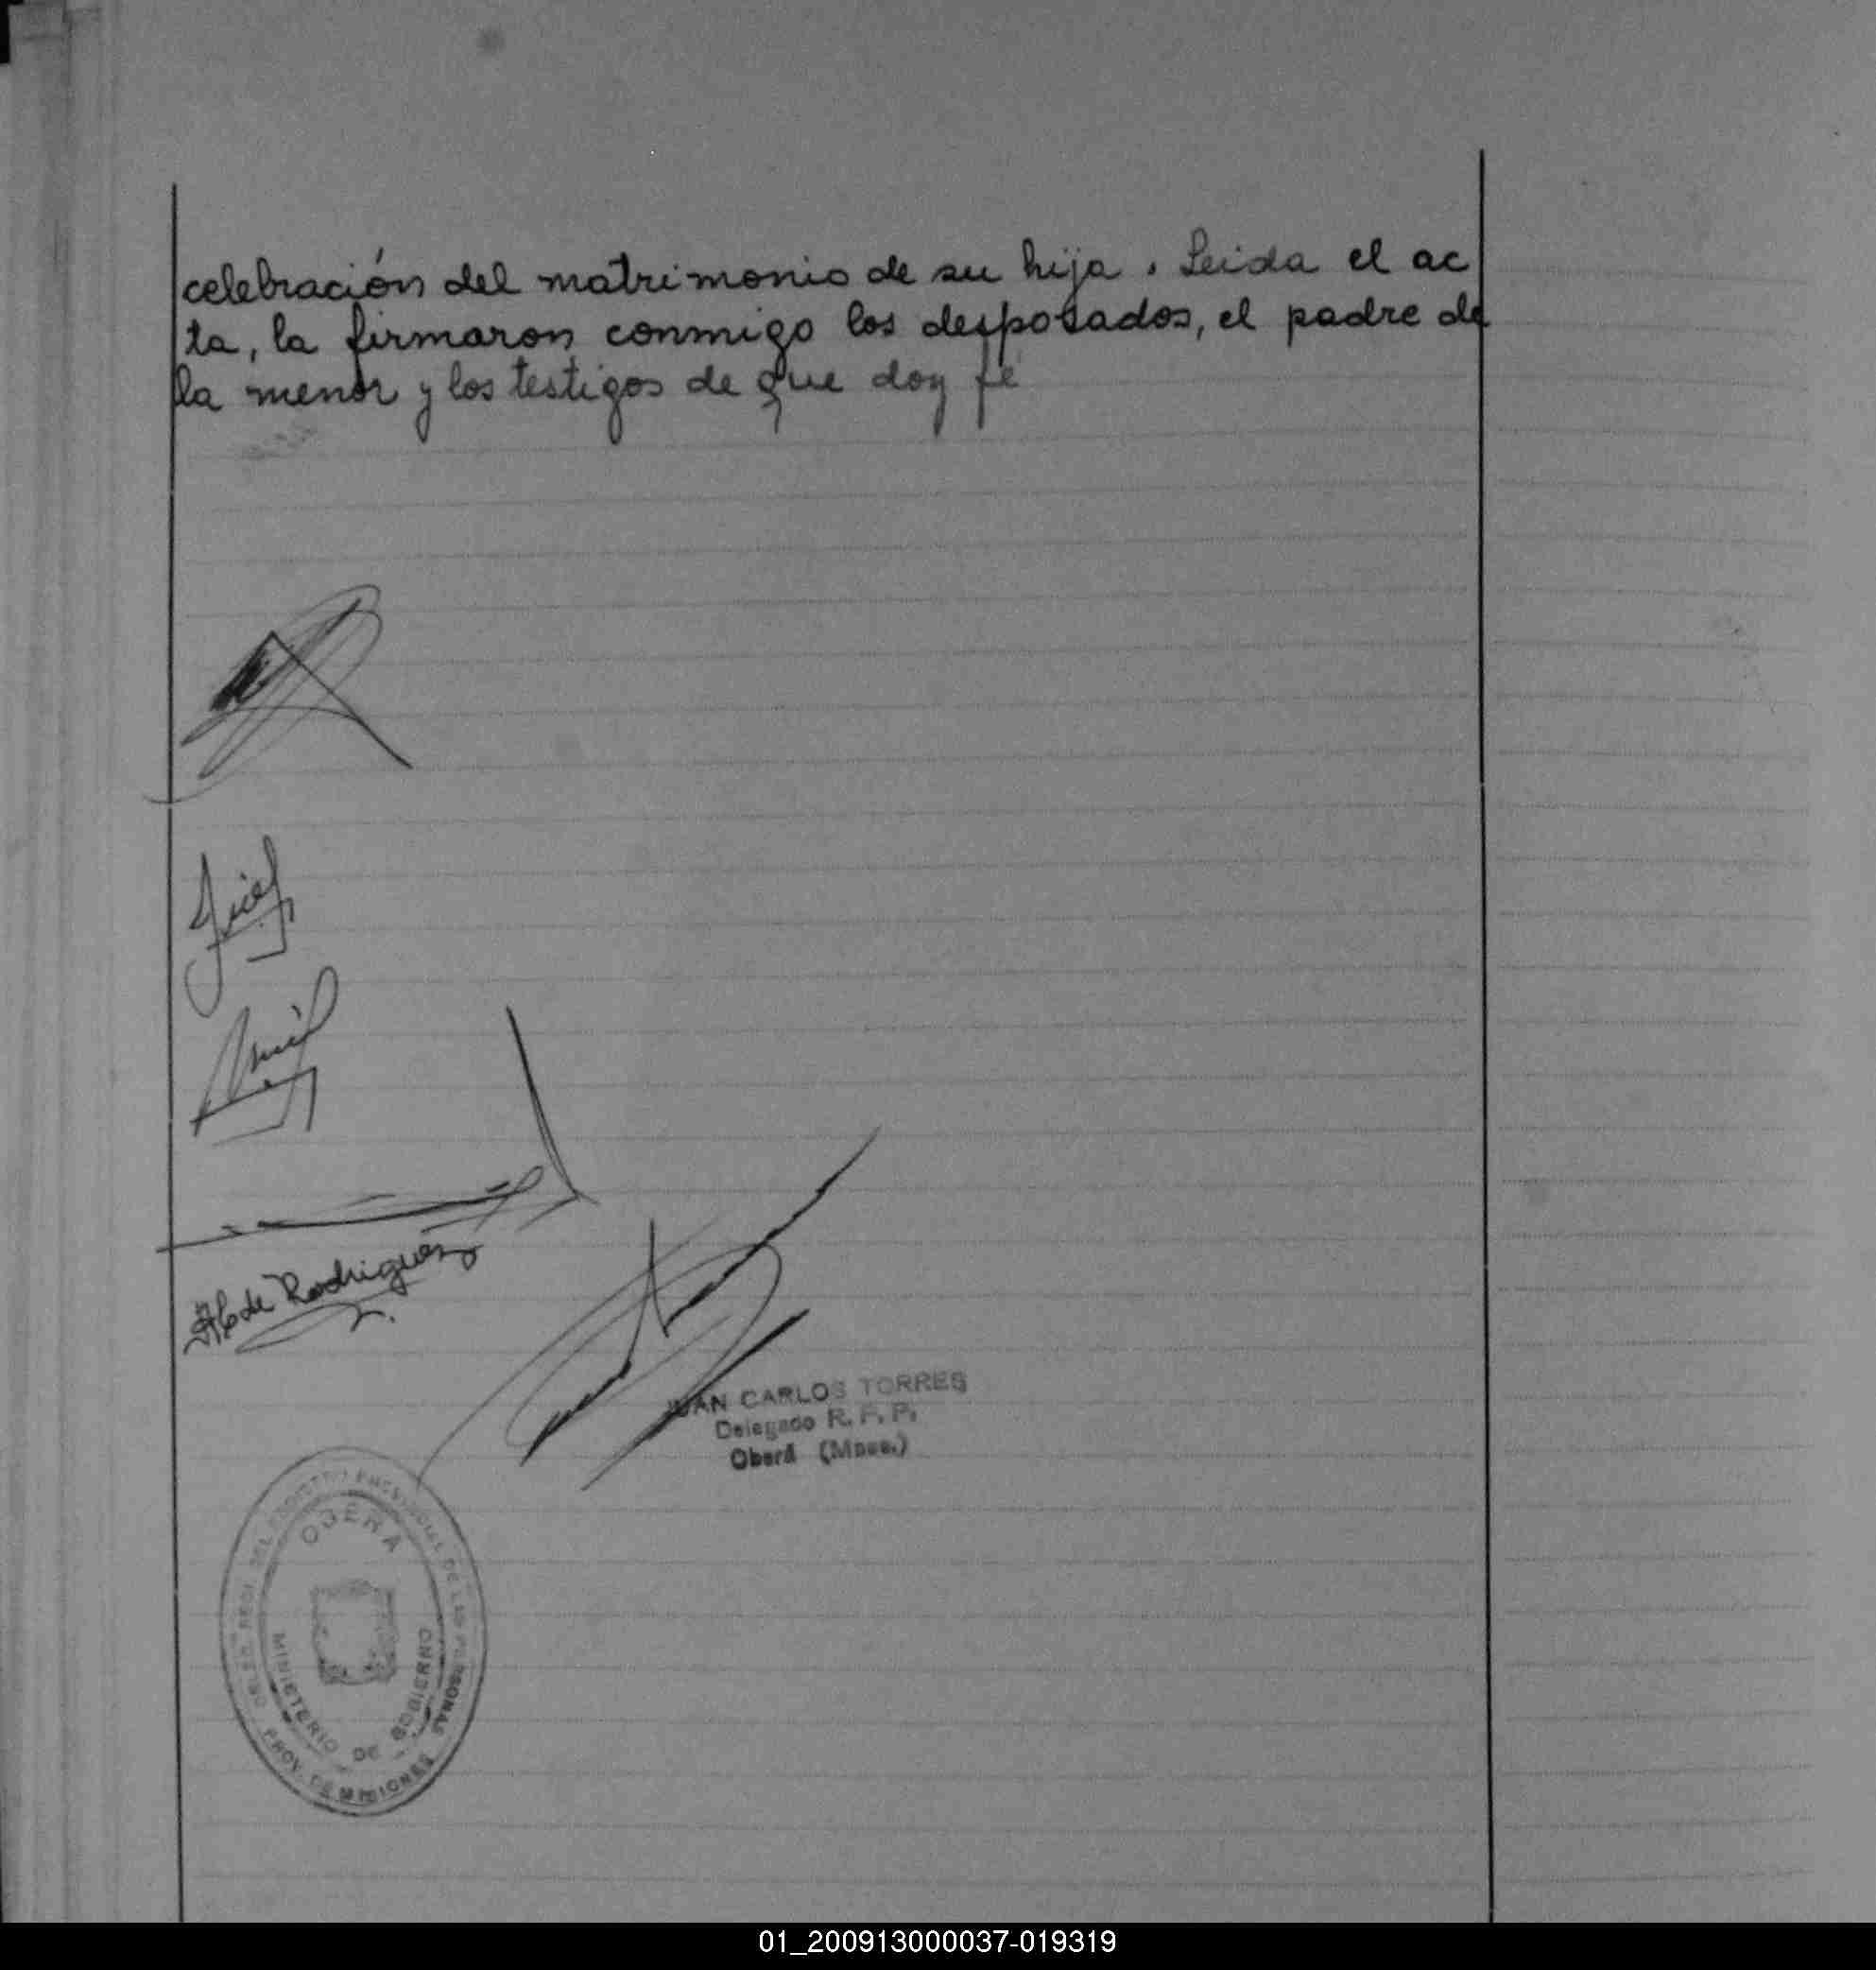 celebración del matrimonio de su hija. Leida el ac
ta, la firmaron conmigo los desposados, el padre de
la menor y los testigos de que doy fé
de Rodriguez
JUAN CARLOS TORRES
Delegado R. P. P.
Oberá (Mnes.)
OBERA
MINISTERIO DE
PROVINCIAL DE LAS PERSONAS
PROV. DE MISIONES
01_200913000037-019319